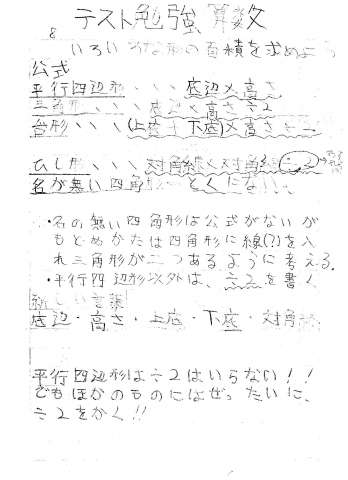 テスト勉強 算数
8
いろいろな形の面積を求めよう
公式
平行四辺形、、、底辺×高さ
三角形、、、底辺×高さ÷2
台形、、、(上底+下底)×高さ÷2
ひし形、、、対角線×対角線÷2
名が無い四角形…とくにない、
・名の無い四角形は公式がないが
もとめかたは四角形に線(?)を入
れ三角形が二つあるように考える.
・平行四辺形以外は、÷2を書く
新しい言葉
底辺・高さ・上底・下底・対角線
平行四辺形は÷2はいらない!!
でもほかのものにはぜったいに、
÷2をかく!!